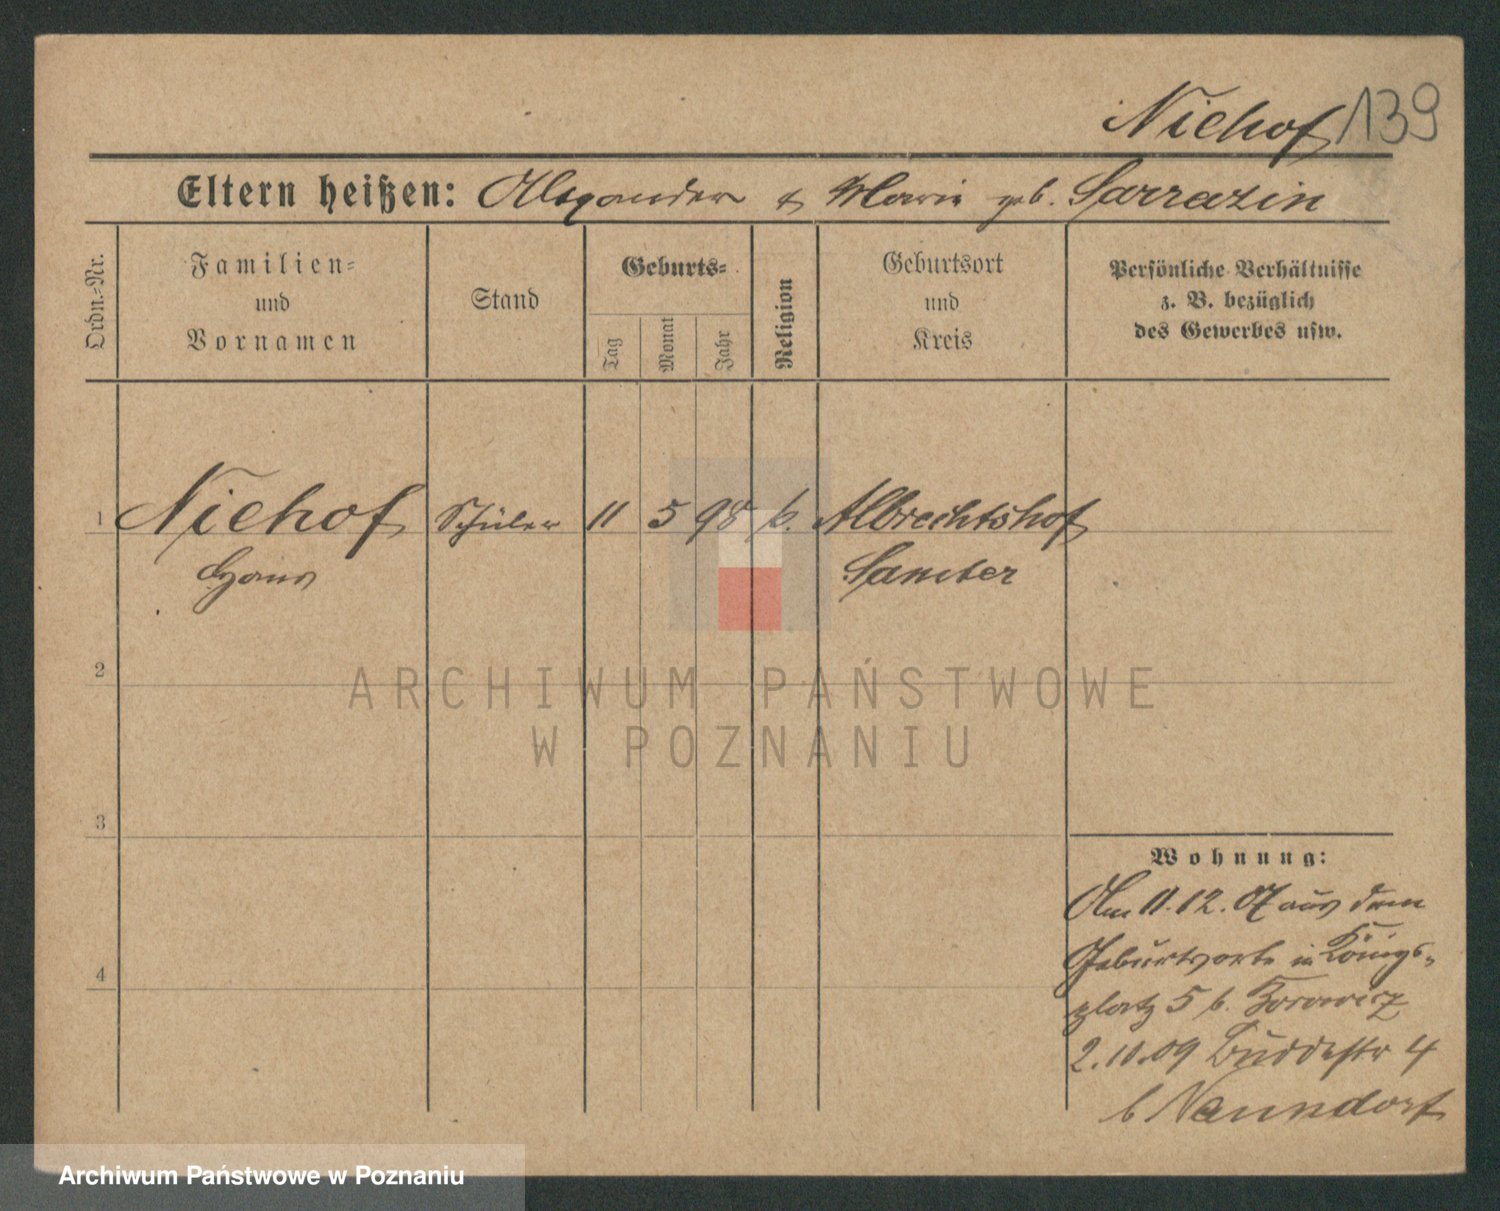 Niehof 139
Eltern heißen: Alexander & Marie geb. Sarrazin
Ordn.-Nr.
Familien-
und
Vornamen
Stand
Geburts-
Tag
Monat
Jahr
Religion
Geburtsort
und
Kreis
Persönliche Verhältnisse
z. B. bezüglich
des Gewerbes usw.
1 Niehof Schüler 11 5 98 k. Albrechtshof
Hans Samter
2
3
4
Wohnung:
Am 11.12.07 aus dem
Geburtsorte in Königs-
platz 5 b.
2.10.09 Buddestr 4
b Nanndorf
ARCHIWUM PAŃSTWOWE
W POZNANIU
Archiwum Państwowe w Poznaniu